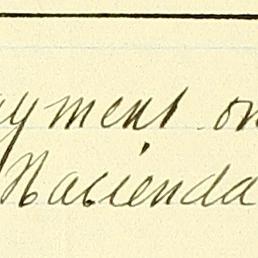 ayment on
Hacienda